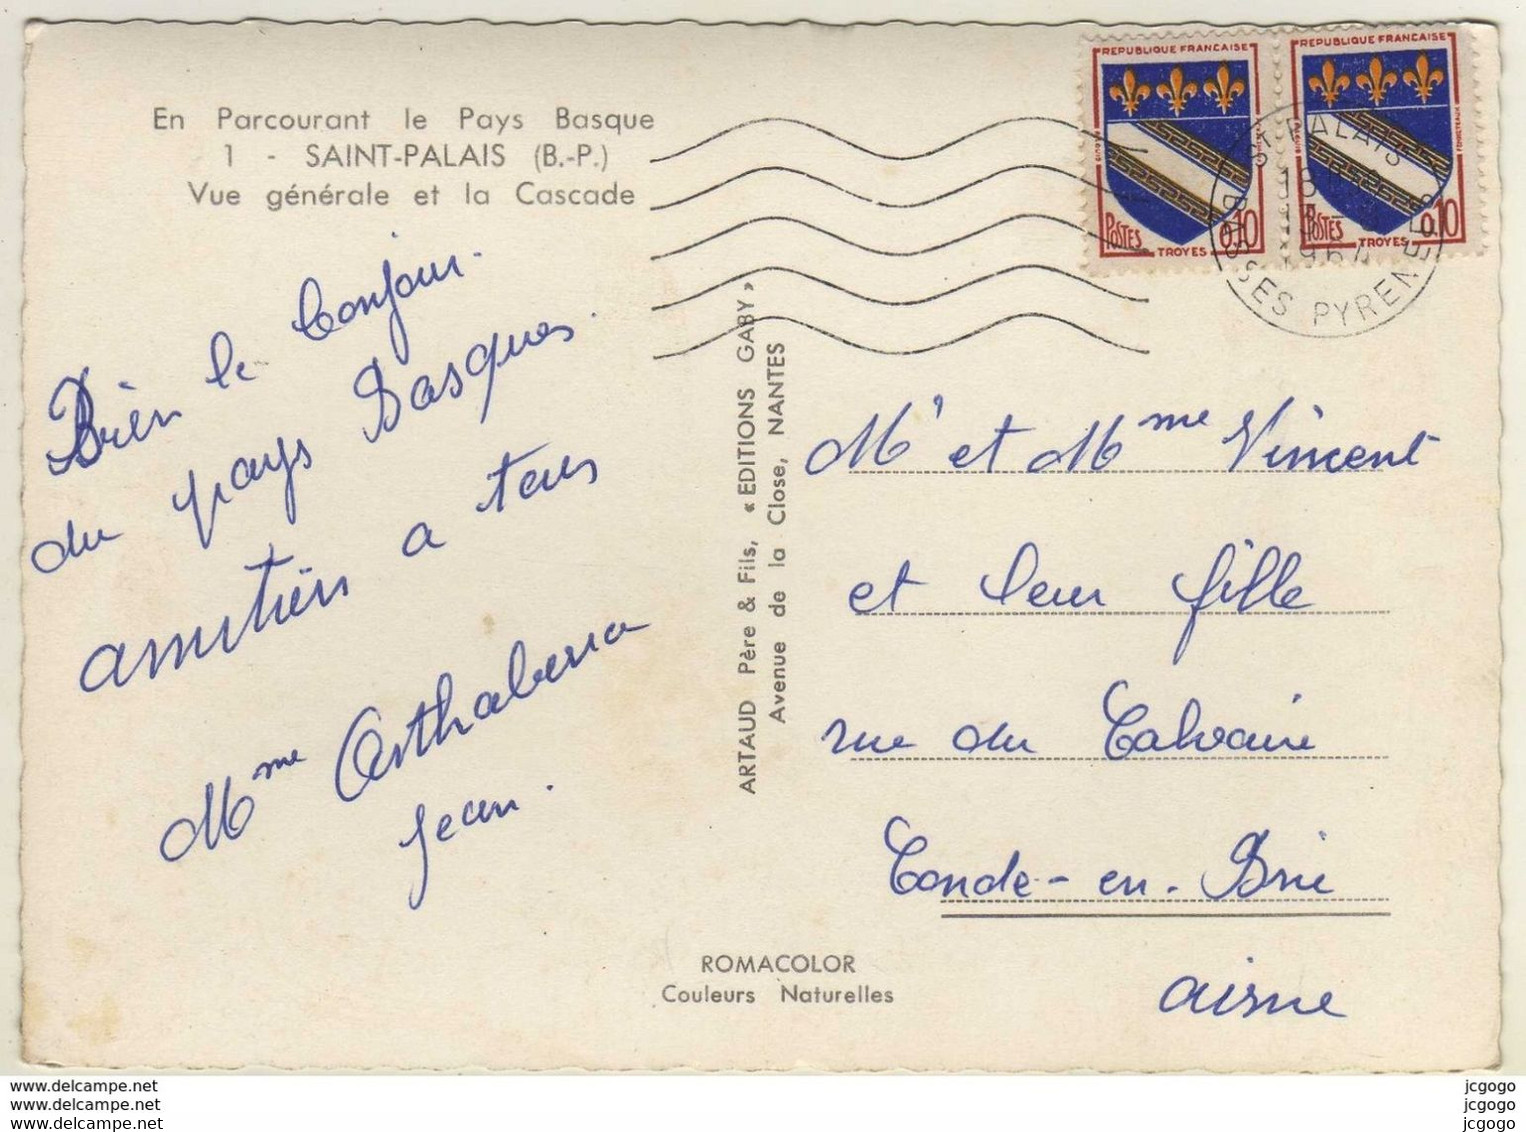 En Parcourant le Pays Basque
1 - SAINT-PALAIS (B.-P.)
Vue générale et la Cascade
Bien le bonjour
du pays Basques.
amitiés a tous
Mme
Jean.
ARTAUD Père & Fils, « EDITIONS GABY »
Avenue de la Close, NANTES
REPUBLIQUE FRANÇAISE
POSTES
0,10
TROYES
REPUBLIQUE FRANÇAISE
POSTES
0,10
TROYES
ST PALAIS
18
1964
BASSES PYRENEES
Mr et Mme Vincent
et leur fille
rue du Calvaire
Conde-en-Brie
aisne
ROMACOLOR
Couleurs Naturelles
www.delcampe.net
www.delcampe.net
www.delcampe.net
jcgogo
jcgogo
jcgogo